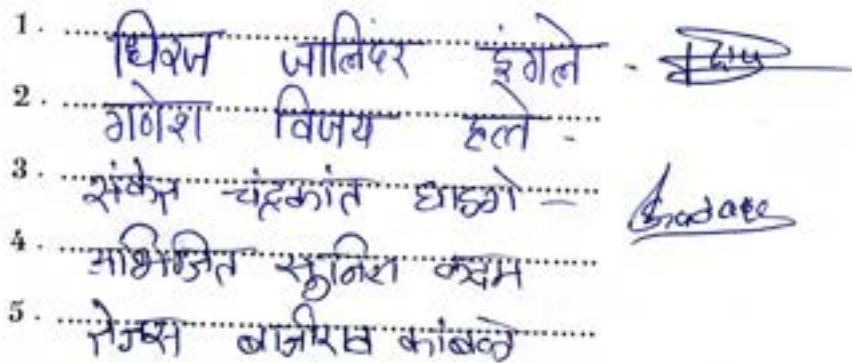 1. धिरज जालिंदर इंगले -
2. गणेश विजय हत्ते -
3. संकेत चंद्रकांत घाडगे -
4. अभिजित सुनिल कदम
5. तेजस बाजीराव कांबळे